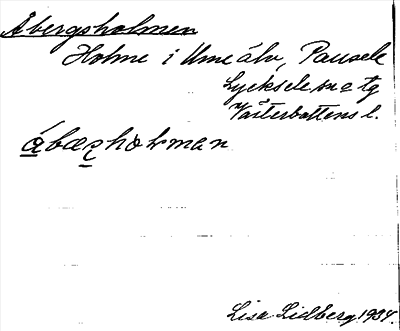 Åbergsholmen
Holme i Umeälv, Pausele
Lycksele sn o tg
Västerbottens l.
åbæȥhoɫman
Lisa Lidberg 1934.